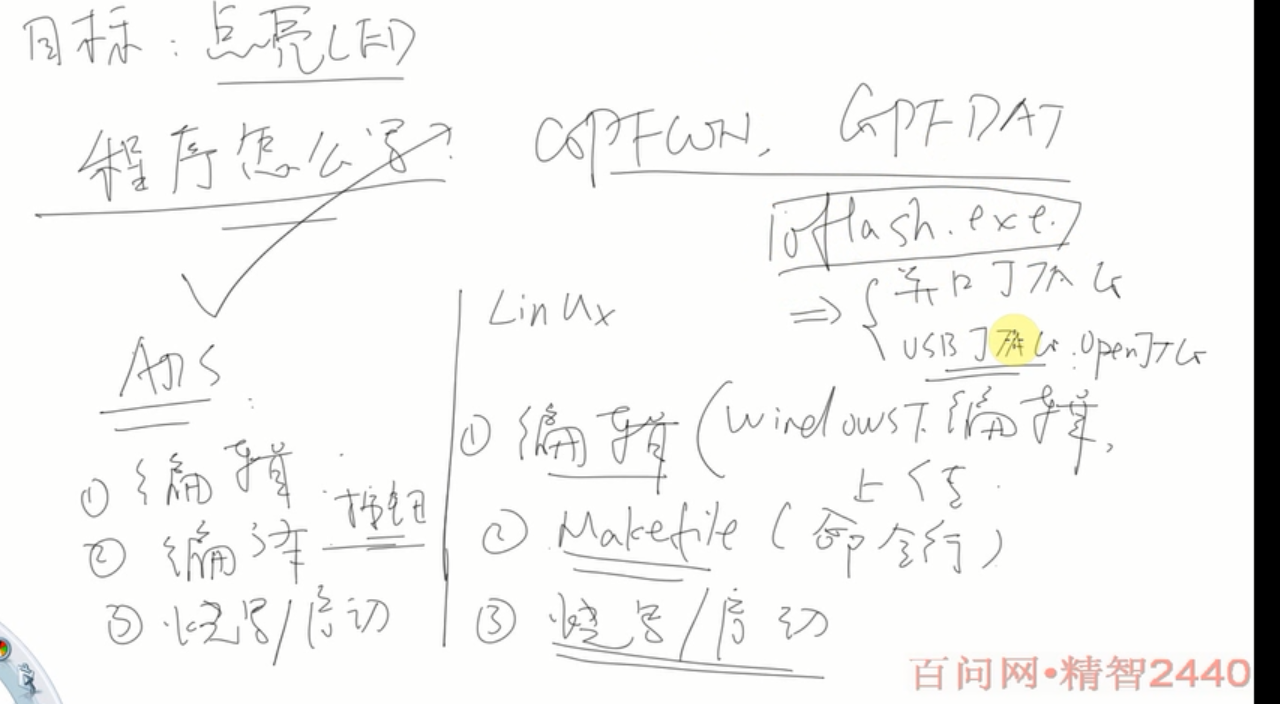 目标：点亮LED
程序怎么写？
GPFCON, GPFDAT
ioflash.exe.
⇒ { 并口JTAG
USB JTAG. OpenJTAG
ADS
① 编辑
② 编译 按钮
③ 烧写/启动
Linux
① 编辑 (windows下编辑,
上传.
② Makefile (命令行)
③ 烧写/启动
百问网•精智2440